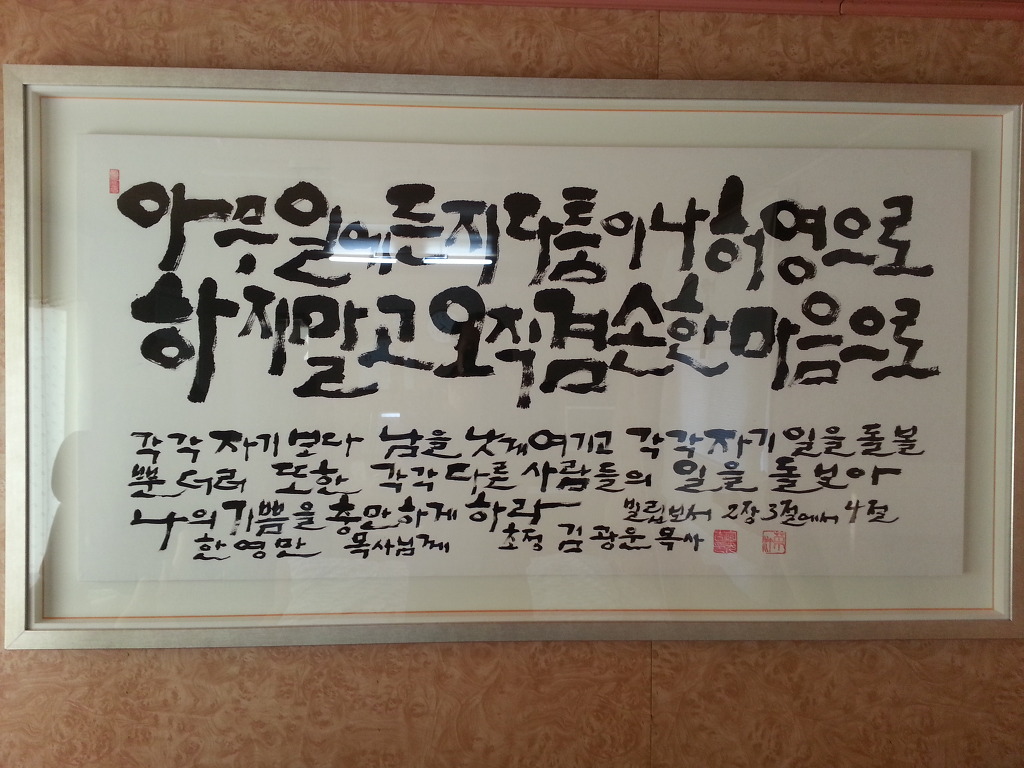 아무일에든지다툼이나허영으로
하지말고오직겸손한마음으로
각각 자기보다 남을 낫게여기고 각각자기일을돌볼
뿐더러 또한 각각다른사람들의 일을 돌보아
나의기쁨을충만하게 하라 빌립보서 2장3절에서4절
한영만 목사님께 초정 김광운목사